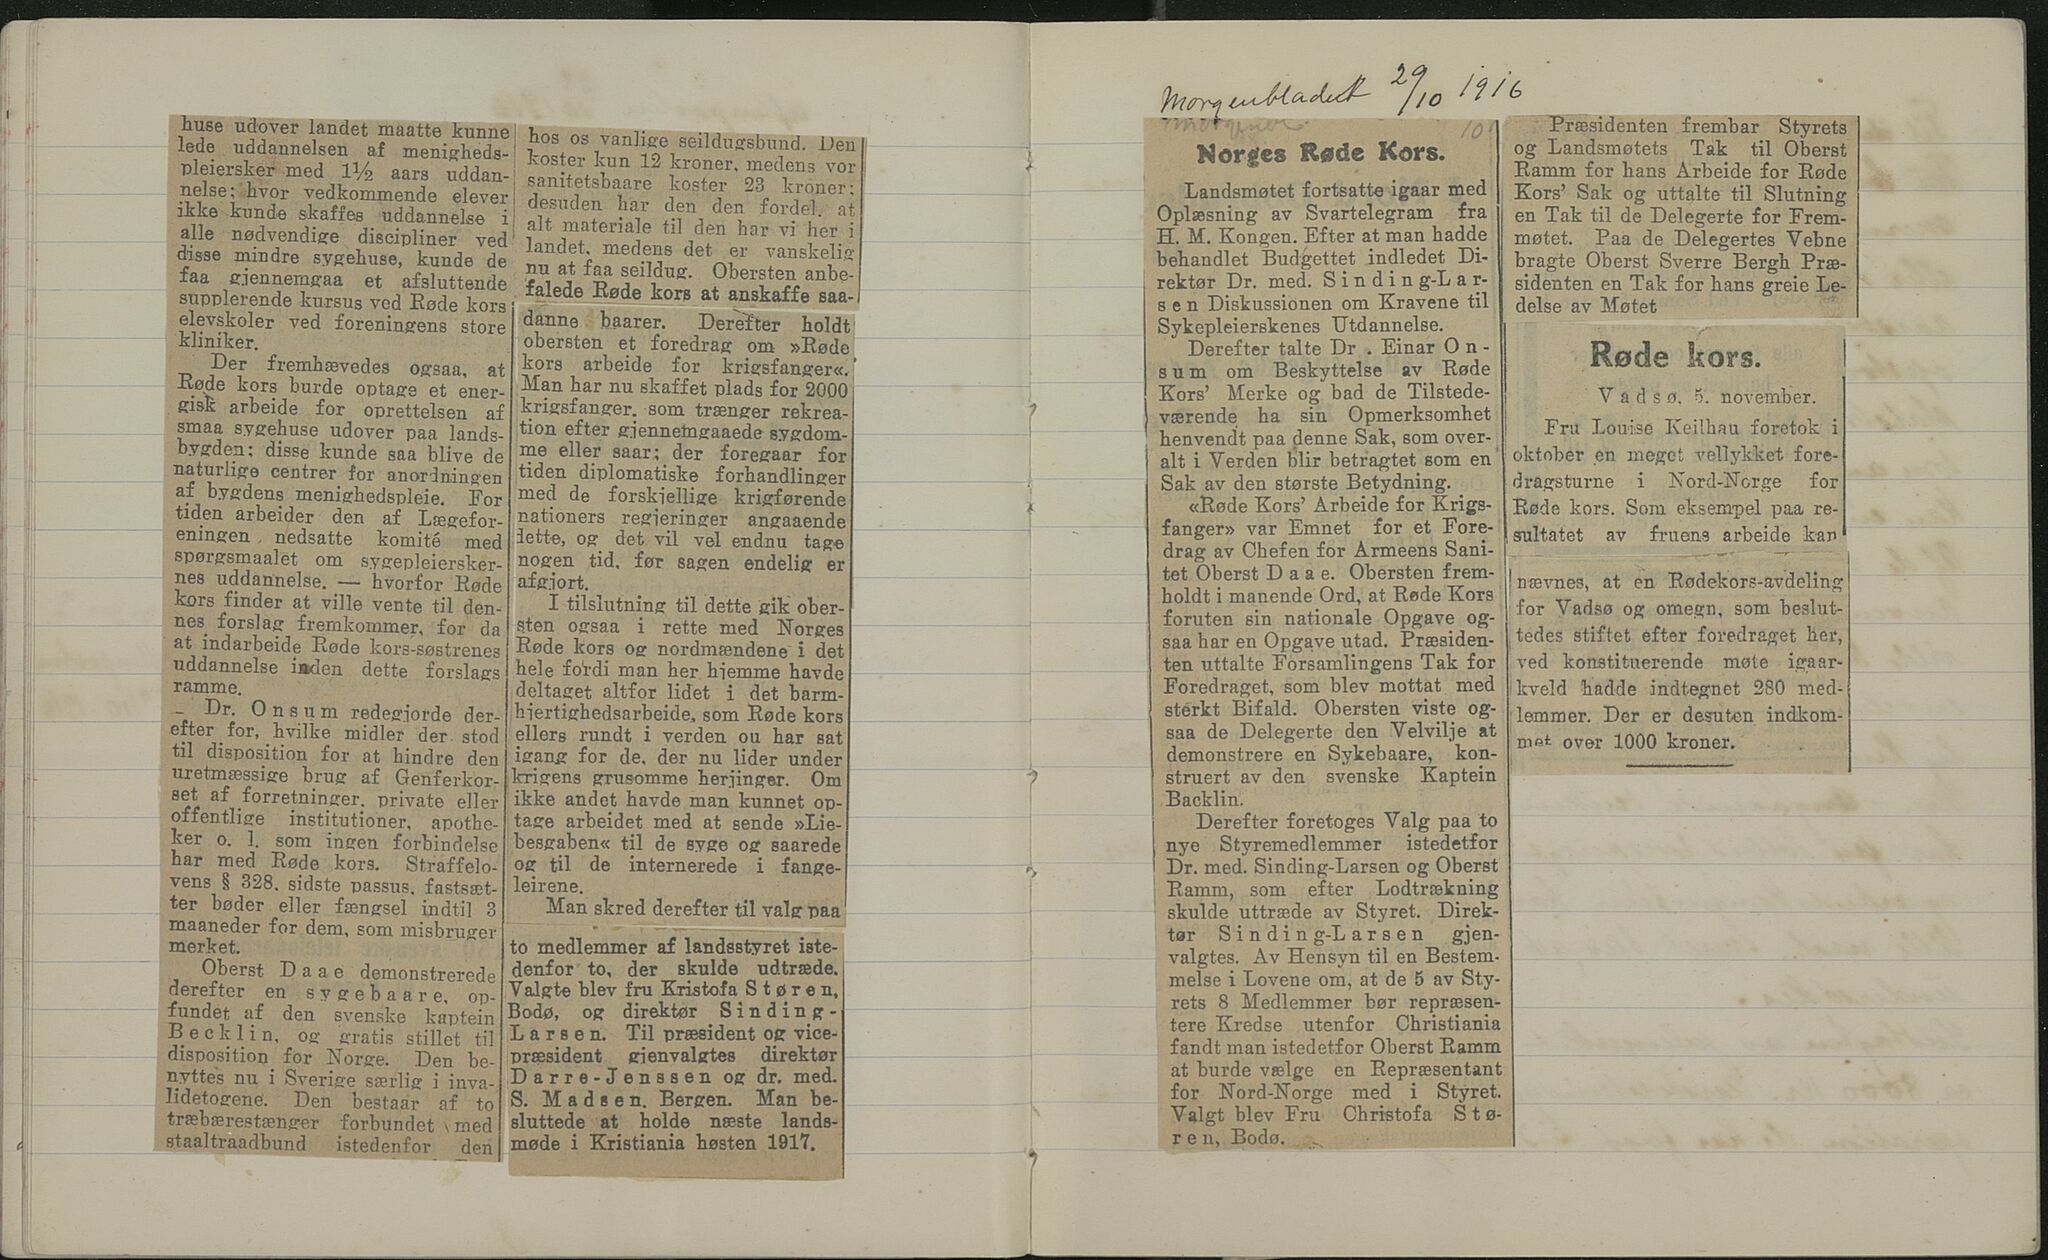 huse udover landet maatte kunne
lede uddannelsen af menigheds-
pleiersker med 1½ aars uddan-
nelse; hvor vedkommende elever
ikke kunde skaffes uddannelse i
alle nødvendige discipliner ved
disse mindre sygehuse, kunde de
faa gjennemgaa et afsluttende
supplerende kursus ved Røde kors
elevskoler ved foreningens store
kliniker.
Der fremhævedes ogsaa, at
Røde kors burde optage et ener-
gisk arbeide for oprettelsen af
smaa sygehuse udover paa lands-
bygden; disse kunde saa blive de
naturlige centrer for anordningen
af bygdens menighedspleie. For
tiden arbeider den af Lægefor-
eningen nedsatte komité med
spørgsmaalet om sygepleiersker-
nes uddannelse, — hvorfor Røde
kors finder at ville vente til den-
nes forslag fremkommer, for da
at indarbeide Røde kors-søstrenes
uddannelse inden dette forslags
ramme.
Dr. Onsum redegjorde der-
efter for, hvilke midler der stod
til disposition for at hindre den
uretmæssige brug af Genferkor-
set af forretninger, private eller
offentlige institutioner, apothe-
ker o. l. som ingen forbindelse
har med Røde kors. Straffelo-
vens § 328, sidste passus, fastsæt-
ter bøder eller fængsel indtil 3
maaneder for dem, som misbruger
merket.
Oberst Daae demonstrerede
derefter en sygebaare, op-
fundet af den svenske kaptein
Becklin, og gratis stillet til
disposition for Norge. Den be-
nyttes nu i Sverige særlig i inva-
lidetogene. Den bestaar af to
træbærestænger forbundet med
staaltraadbund istedenfor den
hos os vanlige seildugsbund. Den
koster kun 12 kroner, medens vor
sanitetsbaare koster 23 kroner;
desuden har den den fordel, at
alt materiale til den har vi her i
landet, medens det er vanskelig
nu at faa seildug. Obersten anbe-
falede Røde kors at anskaffe saa-
danne baarer. Derefter holdt
obersten et foredrag om »Røde
kors arbeide for krigsfanger«.
Man har nu skaffet plads for 2000
krigsfanger, som trænger rekrea-
tion efter gjennemgaaede sygdom-
me eller saar; der foregaar for
tiden diplomatiske forhandlinger
med de forskjellige krigførende
nationers regjeringer angaaende
dette, og det vil vel endnu tage
nogen tid, før sagen endelig er
afgjort.
I tilslutning til dette gik ober-
sten ogsaa i rette med Norges
Røde kors og nordmændene i det
hele fordi man her hjemme havde
deltaget altfor lidet i det barm-
hjertighedsarbeide, som Røde kors
ellers rundt i verden ou har sat
igang for de, der nu lider under
krigens grusomme herjinger. Om
ikke andet havde man kunnet op-
tage arbeidet med at sende »Lie-
besgaben« til de syge og saarede
og til de internerede i fange-
leirene.
Man skred derefter til valg paa
to medlemmer af landsstyret iste-
denfor to, der skulde udtræde.
Valgte blev fru Kristofa Støren,
Bodø, og direktør Sinding-
Larsen. Til præsident og vice-
præsident gjenvalgtes direktør
Darre-Jenssen og dr. med.
S. Madsen, Bergen. Man be-
sluttede at holde næste lands-
møde i Kristiania høsten 1917.
Morgenbladet 29/10 1916
Norges Røde Kors.
Landsmøtet fortsatte igaar med
Oplæsning av Svartelegram fra
H. M. Kongen. Efter at man hadde
behandlet Budgettet indledet Di-
rektør Dr. med. Sinding-Lar-
sen Diskussionen om Kravene til
Sykepleierskenes Utdannelse.
Derefter talte Dr. Einar On-
sum om Beskyttelse av Røde
Kors' Merke og bad de Tilstede-
værende ha sin Opmerksomhet
henvendt paa denne Sak, som over-
alt i Verden blir betragtet som en
Sak av den største Betydning.
«Røde Kors' Arbeide for Krigs-
fanger» var Emnet for et Fore-
drag av Chefen for Armeens Sani-
tet Oberst Daae. Obersten frem-
holdt i manende Ord, at Røde Kors
foruten sin nationale Opgave og-
saa har en Opgave utad. Præsiden-
ten uttalte Forsamlingens Tak for
Foredraget, som blev mottat med
sterkt Bifald. Obersten viste og-
saa de Delegerte den Velvilje at
demonstrere en Sykebaare, kon-
struert av den svenske Kaptein
Backlin.
Derefter foretoges Valg paa to
nye Styremedlemmer istedetfor
Dr. med. Sinding-Larsen og Oberst
Ramm, som efter Lodtrækning
skulde uttræde av Styret. Direk-
tør Sinding-Larsen gjen-
valgtes. Av Hensyn til en Bestem-
melse i Lovene om, at de 5 av Sty-
rets 8 Medlemmer bør repræsen-
tere Kredse utenfor Christiania
fandt man istedetfor Oberst Ramm
at burde vælge en Repræsentant
for Nord-Norge med i Styret.
Valgt blev Fru Christofa Stø-
ren, Bodø.
Præsidenten frembar Styrets
og Landsmøtets Tak til Oberst
Ramm for hans Arbeide for Røde
Kors' Sak og uttalte til Slutning
en Tak til de Delegerte for Frem-
møtet. Paa de Delegertes Vebne
bragte Oberst Sverre Bergh Præ-
sidenten en Tak for hans greie Le-
delse av Møtet
Røde kors.
Vadsø, 5. november.
Fru Louise Keilhau foretok i
oktober en meget vellykket fore-
dragsturne i Nord-Norge for
Røde kors. Som eksempel paa re-
sultatet av fruens arbeide kan
nævnes, at en Rødekors-avdeling
for Vadsø og omegn, som beslut-
tedes stiftet efter foredraget her,
ved konstituerende møte igaar-
kveld hadde indtegnet 280 med-
lemmer. Der er desuten indkom-
met over 1000 kroner.